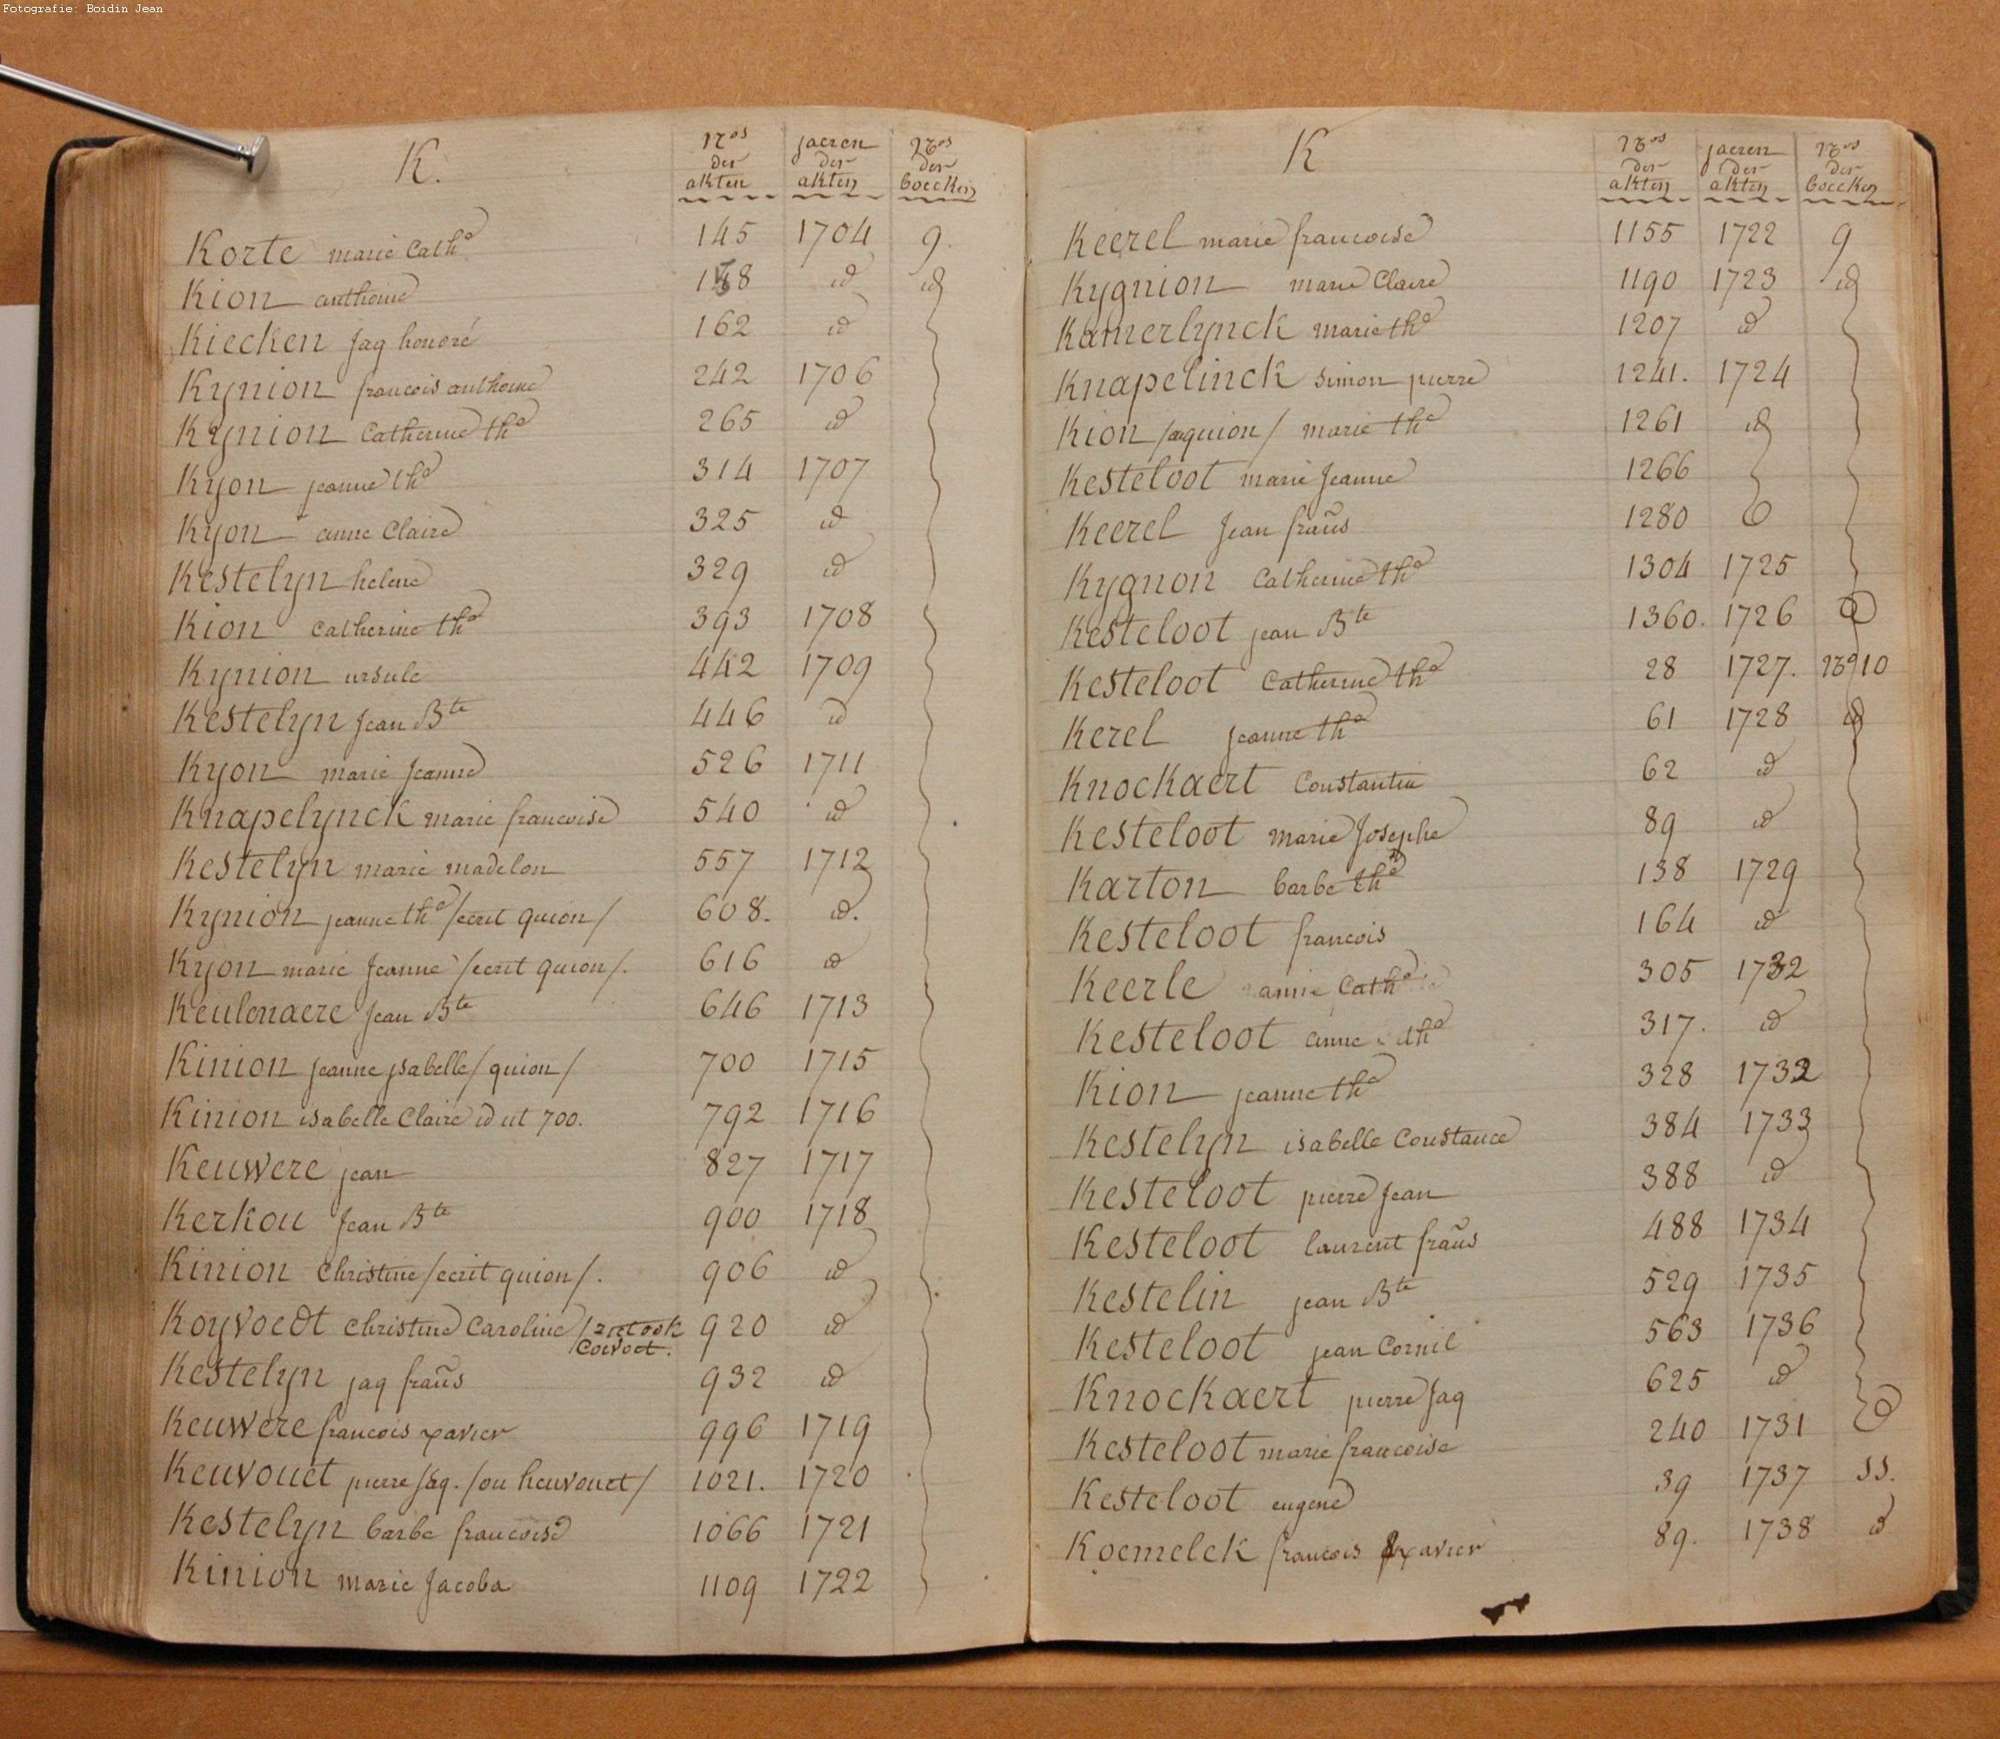 Fotografie: Boidin Jean
K. Nos der akten jaeren der akten Nos der boecken
Korte marie Cathe 145 1704 9.
Kion anthoine 158 id id
Kiecken Jaq honoré 162 id
Kynion francois anthoine 242 1706
Kynion Catherine the 265 id
Kyon jeanne the 314 1707
Kyon anne Claire 325 id
Kestelyn helene 329 id
Kion Catherine the 393 1708
Kynion ursule 442 1709
Kestelyn Jean Bte 446 id
Kyon marie Jeanne 526 1711
Knapelynck marie francoise 540 id
Kestelyn marie madelon 557 1712
Kynion jeanne the /ecrit quion/ 608. id.
Kyon marie Jeanne /ecrit quion/. 616 id
Keulenaere Jean Bte 646 1713
Kinion jeanne ysabelle /quion/ 700 1715
Kinion isabelle Claire id ut 700. 792 1716
Keuwere jean 827 1717
Kerkou Jean Bte 900 1718
Kinion Christine /ecrit quion/. 906 id
Koyvoedt Christine Caroline /ziet ook 920 id
Coivoet.
Kestelyn jaq frañs 932 id
Keuwere francois xavier 996 1719
Keuvouet pierre Jaq. /ou heuvouet/ 1021. 1720
Kestelyn barbe francoise 1066 1721
Kinion marie Jacoba 1109 1722
K Nos der akten jaeren der akten Nos der boecken
Keerel marie francoise 1155 1722 9
Kygnion marie Claire 1190 1723 id
Kamerlynck marie the 1207 id
Knapelinck simon pierre 1241. 1724
Kion /aquion/ marie the 1261 id
Kesteloot marie Jeanne 1266
Keerel Jean frañs 1280
Kygnon Catherine the 1304 1725
Kesteloot jean Bte 1360. 1726
Kesteloot Catherine the 28 1727. No 10
Kerel jeanne the 61 1728 id
Knockaert Constantin 62 id
Kesteloot marie Josephe 89 id
Karton barbe the 138 1729
Kesteloot francois 164 id
Keerle anne Cathe 305 1732
Kesteloot anne the 317. id
Kion jeanne the 328 1732
Kestelyn isabelle Constance 384 1733
Kesteloot pierre Jean 388 id
Kesteloot laurent frañs 488 1734
Kestelin jean Bte 529 1735
Kesteloot jean Cornil 563 1736
Knockaert pierre Jaq 625 id
Kesteloot marie francoise 240 1731
Kesteloot eugene 39 1737 11.
Koemelck francois xavier 89. 1738 id